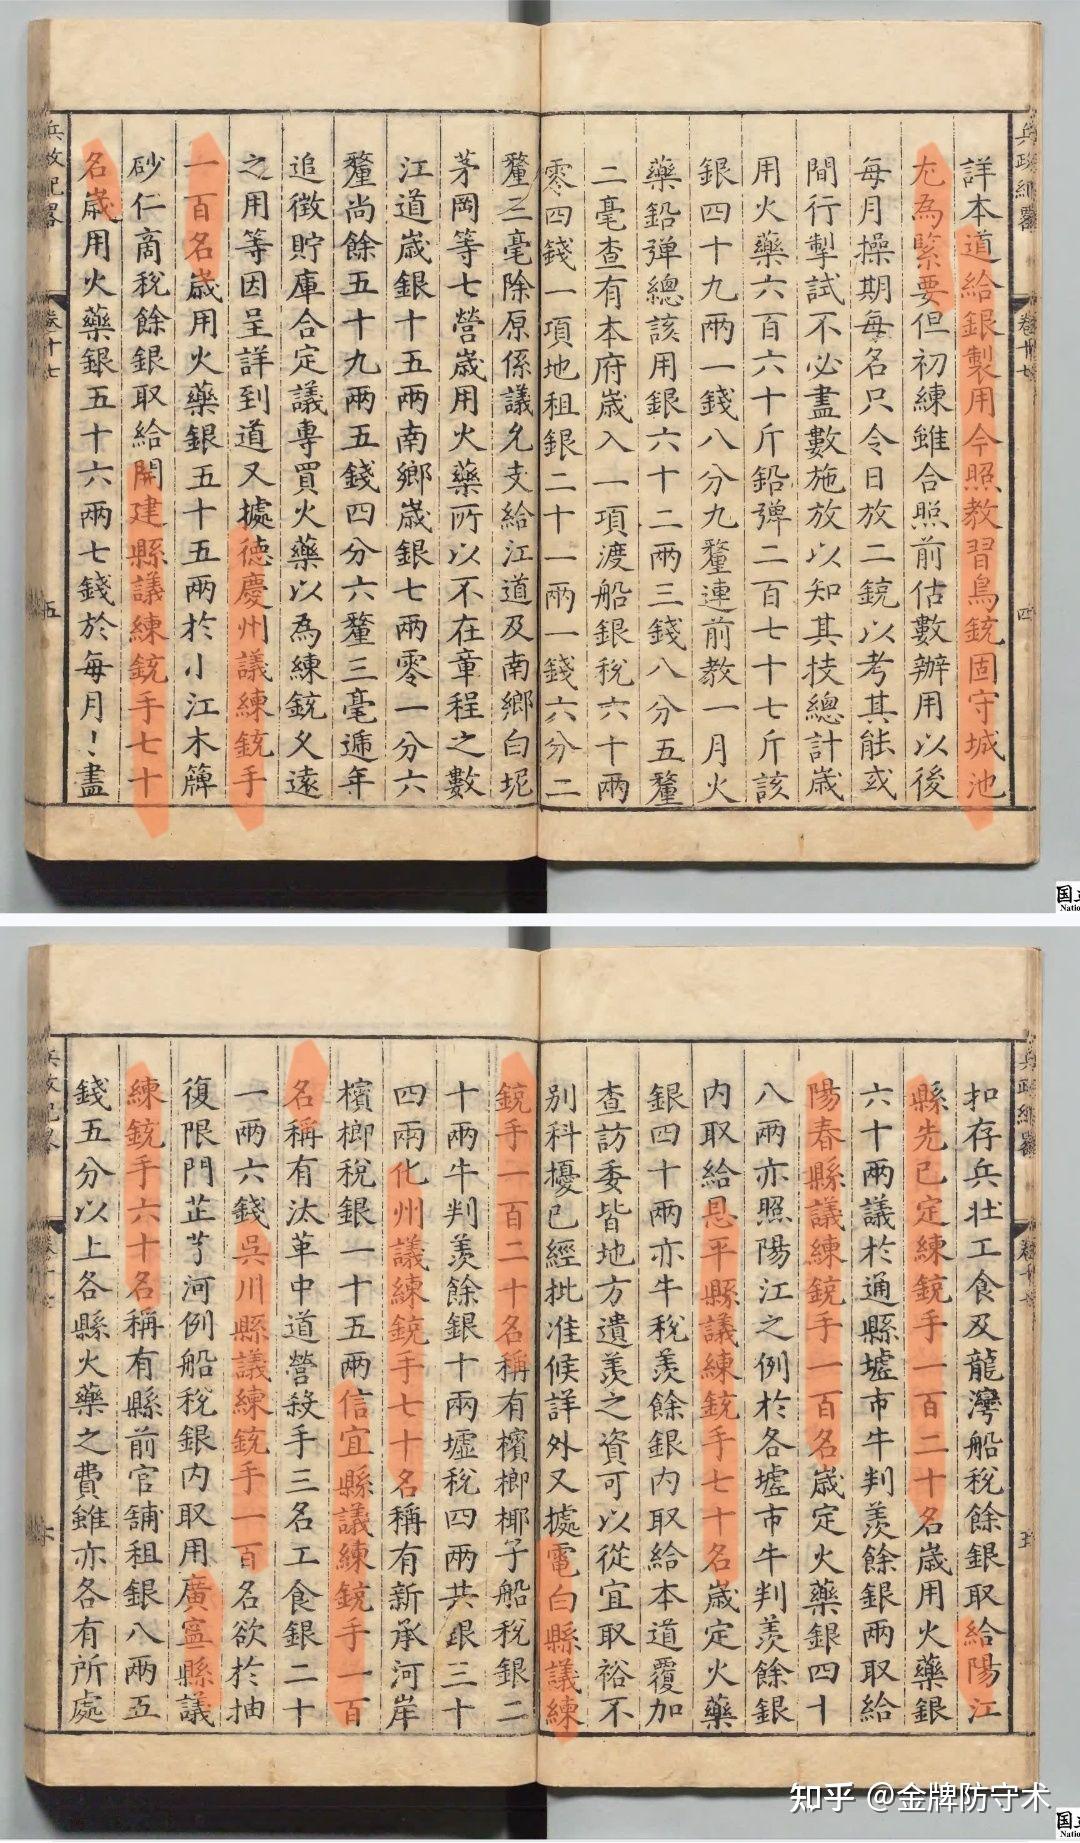 兵政紀畧
卷十七
四
詳本道給銀製用今照教習鳥銃固守城池
尤為緊要但初練雖合照前估數辦用以後
每月操期每名只令日放二銃以考其能或
間行掣試不必盡數施放以知其技總計歲
用火藥六百六十斤鉛彈二百七十七斤該
銀四十九兩一錢八分九釐連前教一月火
藥鉛彈總該用銀六十二兩三錢八分五釐
二毫查有本府歲入一項渡船銀稅六十兩
零四錢一項地租銀二十一兩一錢六分二
釐三毫除原係議允支給江道及南鄉白坭
茅岡等七營歲用火藥所以不在章程之數
江道歲銀十五兩南鄉歲銀七兩零一分六
釐尚餘五十九兩五錢四分六釐三毫遞年
追徵貯庫合定議專買火藥以為練銃久遠
之用等因呈詳到道又據德慶州議練銃手
一百名歲用火藥銀五十五兩於小江木簰
砂仁商稅餘銀取給開建縣議練銃手七十
名歲用火藥銀五十六兩七錢於每月一盡
兵政紀畧
卷十七
五
兵政紀畧
卷十七
扣存兵壯工食及龍灣船稅餘銀取給陽江
縣先已定練銃手一百二十名歲用火藥銀
六十兩議於通縣墟市牛判羨餘銀兩取給
陽春縣議練銃手一百名歲定火藥銀四十
八兩亦照陽江之例於各墟市牛判羨餘銀
內取給恩平縣議練銃手七十名歲定火藥
銀四十兩亦牛稅羨餘銀內取給本道覆加
查訪委皆地方遺羨之資可以從宜取裕不
別科擾已經批准候詳外又據電白縣議練
銃手一百二十名稱有檳榔椰子船稅銀二
十兩牛判羨餘銀十兩墟稅四兩共銀三十
四兩化州議練銃手七十名稱有新承河岸
檳榔稅銀一十五兩信宜縣議練銃手一百
名稱有汰革中道營殺手三名工食銀二十
一兩六錢吳川縣議練銃手一百名欲於抽
復限門芷艼河例船稅銀內取用廣寧縣議
練銃手六十名稱有縣前官舖租銀八兩五
錢五分以上各縣火藥之費雖亦各有所處
兵政紀畧
卷十七
六
国立
Natio
知乎 @金牌防守术
国立
Natio